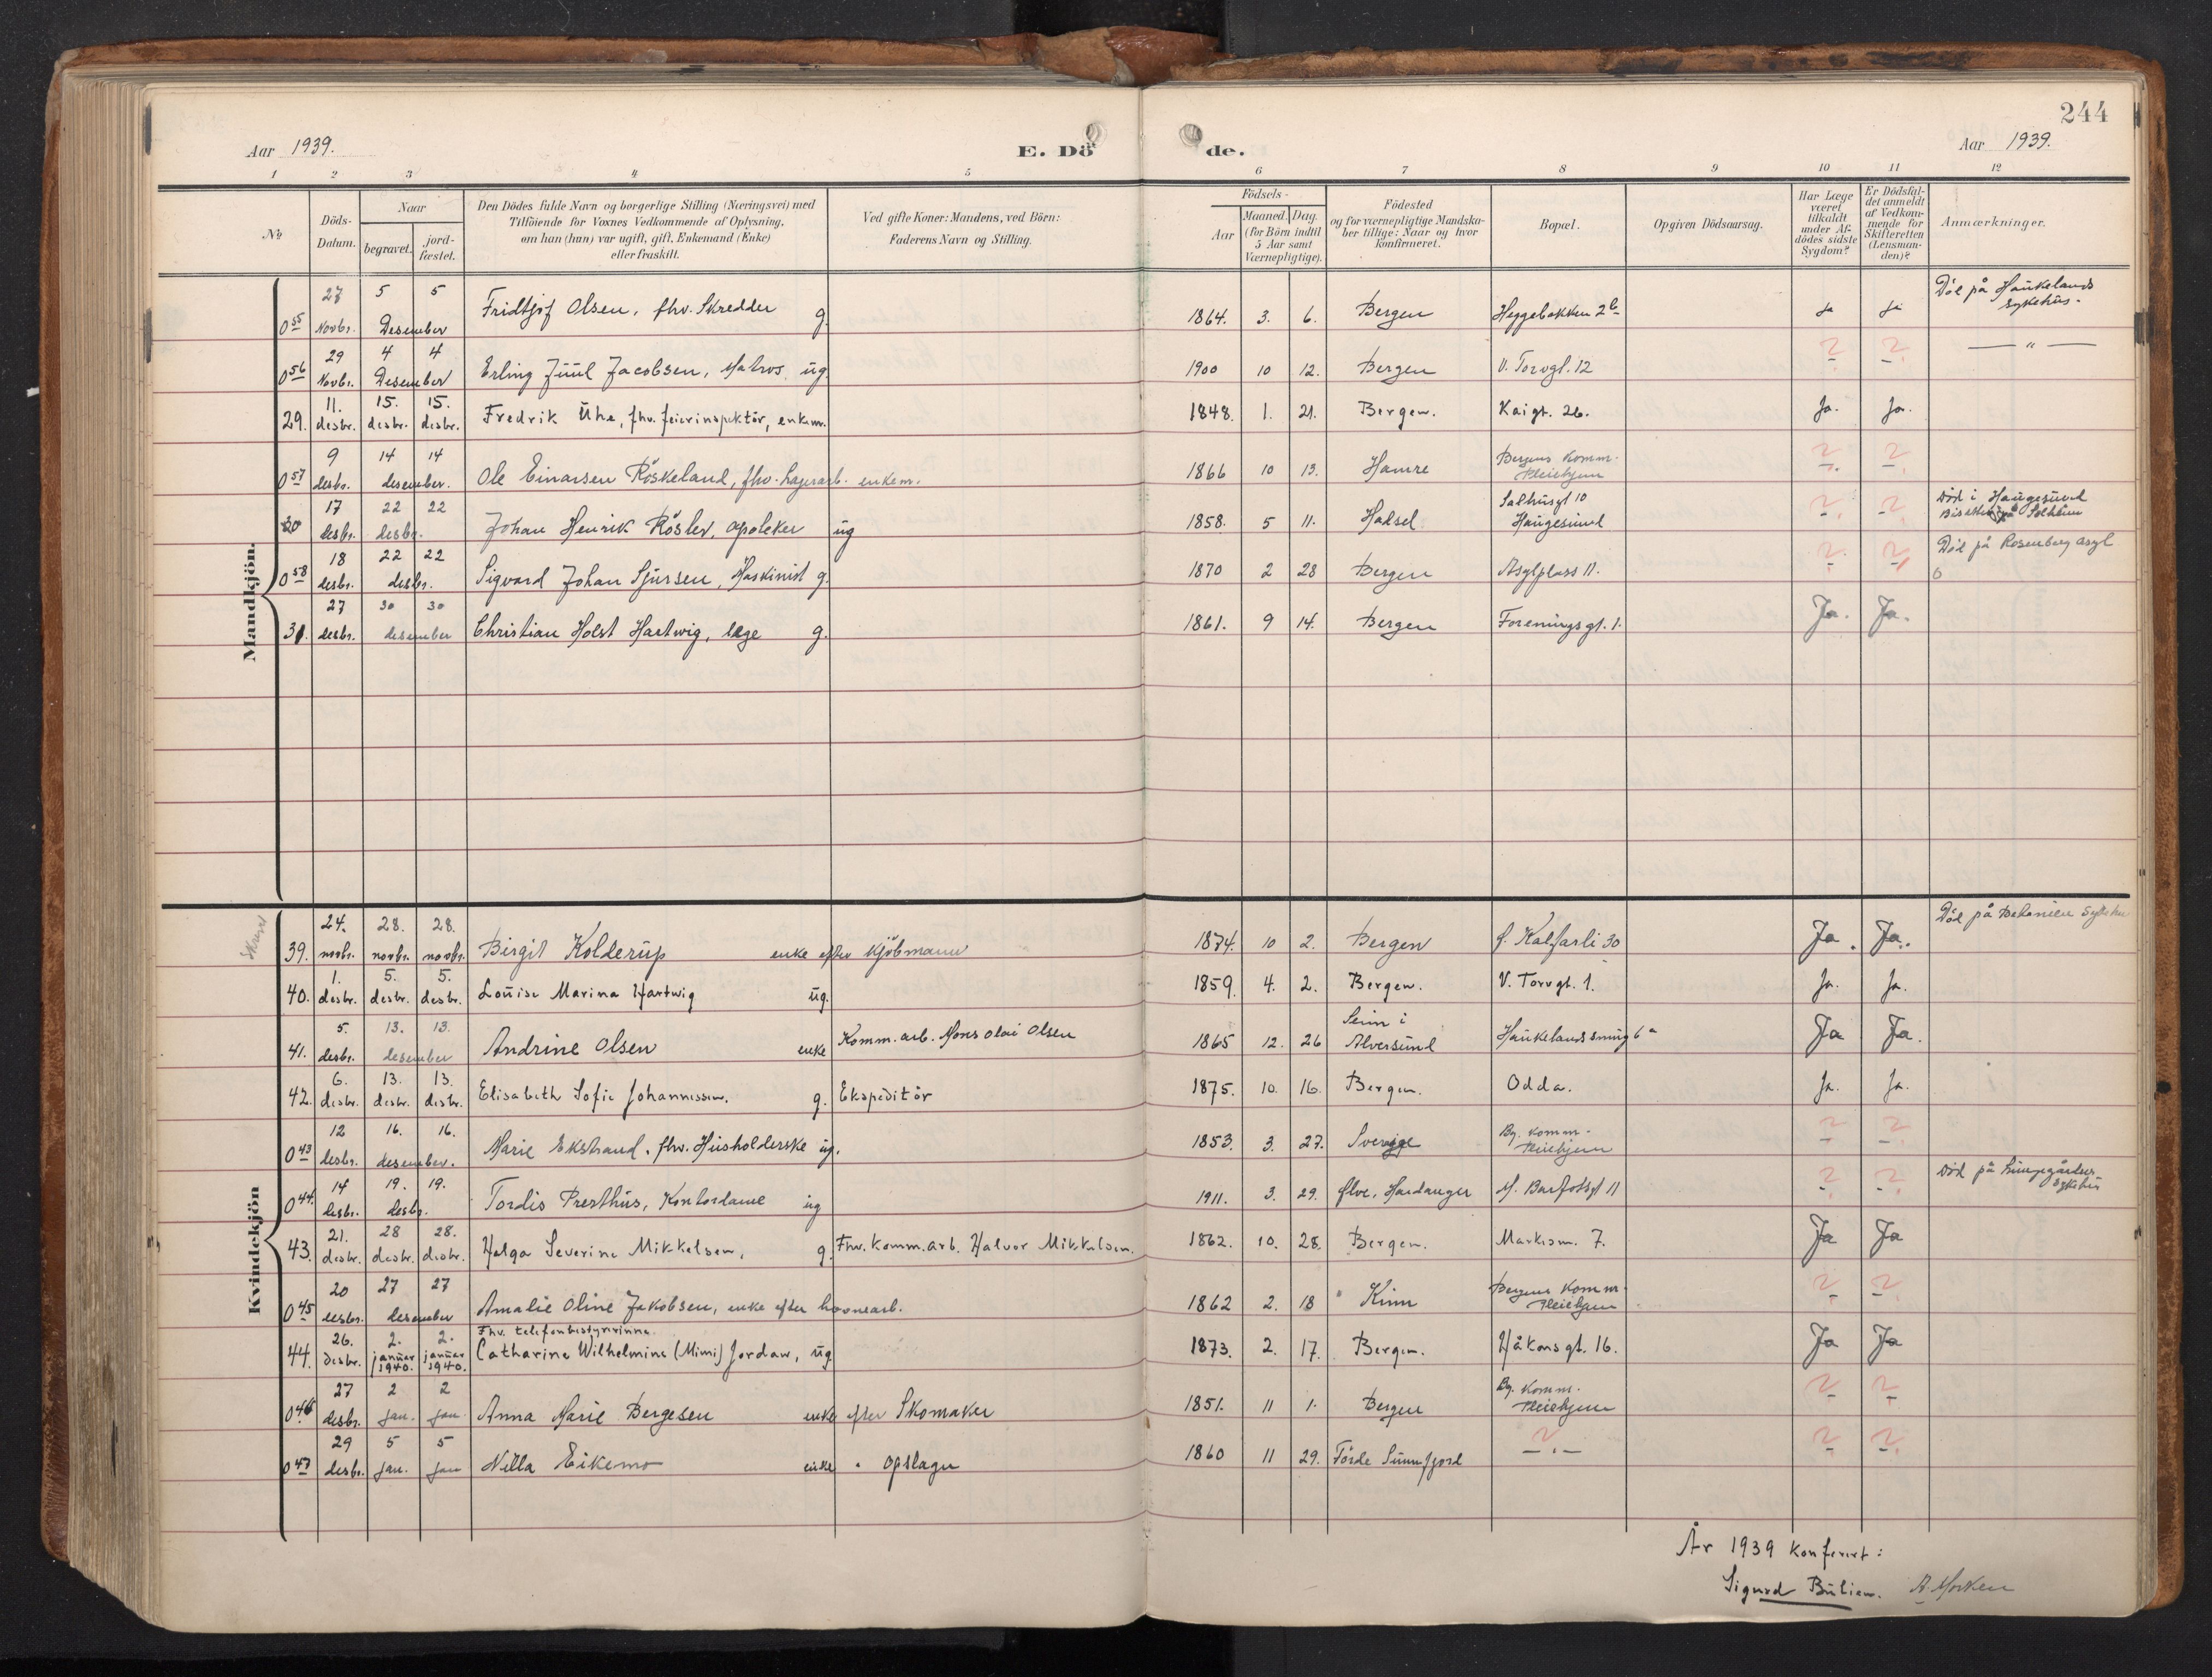 244
Aar 1939.
E. Döde.
Aar 1939.
1 2 3 4 5 6 7 8 9 10 11 12
№
Döds-Datum.
Naar
begravet.
jord-fæstet.
Den Dödes fulde Navn og borgerlige Stilling (Næringsvei) med
Tilföiende for Voxnes Vedkommende af Oplysning,
om han (hun) var ugift, gift, Enkemand (Enke)
eller fraskilt.
Ved gifte Koner: Mandens, ved Börn:
Faderens Navn og Stilling.
Födsels-
Aar
Maaned. Dag.
(for Börn indtil
5 Aar samt
Værnepligtige).
Födested
og for værnepligtige Mandska-
ber tillige: Naar og hvor
konfirmeret.
Bopæl.
Opgiven Dödsaarsag.
Har Læge
været
tilkaldt
under Af-
dödes sidste
Sygdom?
Er Dödsfal-
det anmeldt
af Vedkom-
mende for
Skifteretten
(Lensman-
den)?
Anmærkninger.
Mandkjön.
055 27 Novbr. 5 5 Desember Fridtjof Olsen, fhv. Skredder g. 1864. 3. 6. Bergen Heggebakken 2b Ja Ja Död på Haukelands sykehus.
056 29 Novbr. 4 4 Desember Erling Juul Jacobsen, Matros ug. 1900 10 12. Bergen V. Torvgt. 12 ? ? — " —
29. 11. desbr. 15. desbr. 15. desbr. Fredrik Uhe, fhv. feierinspektör, enkem. 1848. 1. 21. Bergen. Kaigt. 26. Ja. Ja.
057 9 desbr. 14 14 desember. Ole Einarsen Röskeland, fhv. lagerarb. enkem. 1866 10 13. Hamre Bergens Komm. Pleiehjem ? ?
30 17 desbr. 22 22 desbr. Johan Henrik Rösler, apoteker ug 1858. 5 11. Hadsel Salhusgt 10 Haugesund ? ? Död i Haugesund
058 18 desbr. 22 22 desbr. Sigvard Johan Sjursen, Maskinist g. 1870 2 28 Bergen Asylplass 11. ? ? Död på Rosenberg asyl
31. 27 desbr. 30 30 desember Christian Holst Hartwig, læge g. 1861. 9 14. Bergen Foreningsgt. 1. Ja. Ja.
Kvindekjön
39. 24. novbr. 28. novbr. 28. novbr. Birgit Kolderup enke efter Kjöbmann 1874. 10 2. Bergen Ø. Kalfarli 30 Ja. Ja. Död på Betanien
40. 1. desbr. 5. desbr. 5. desbr. Louise Marina Hartwig ug. 1859. 4. 2. Bergen. V. Torvgt. 1. Ja. Ja.
41. 5. desbr. 13. 13. desember Andrine Olsen enke Komm. arb. Mons Olai Olsen 1865 12. 26 Seim i Alversund Haukelandssmug 6a Ja Ja.
42. 6. desbr. 13. desbr. 13. desbr. Elisabeth Sofie Johannessen. g. Ekspeditör 1875. 10. 16. Bergen. Odda. Ja. Ja.
043 12 desbr. 16. 16. desember. Marie Ekstrand. fhv. Husholderske ug. 1853. 3. 27. Sverige Bg. Komm. Pleiehjem ? ?
044. 14 desbr. 19. 19. desbr. Tordis Presthus, Kontordame ug 1911. 3. 29. Ølve, Hardanger M. Barfotsgt 11 ? ? Död på Lungegårdens sykehus
43. 21. desbr. 28 desbr. 28. desbr. Helga Severine Mikkelsen, g. Fhv. Komm. arb. Halvor Mikkelsen. 1862. 10. 28. Bergen. Markesm. 7. Ja Ja
045 20 desbr. 27 27 desember Amalie Oline Jakobsen, enke efter havnearb. 1862 2. 18 Kinn Bergens Komm. Pleiehjem ? ?
44. 26. desbr. 2. januar 1940. 2. januar 1940. Fhv. telefonbestyrerinne. Catharine Wilhelmine (Mimi) Jordan, ug 1873. 2. 17. Bergen. Håkonsgt. 16. Ja Ja
046 27 desbr. 2 jan. 2 jan. Anna Marie Bergesen enke efter Skomaker 1851. 11 1. Bergen Bg. Komm. Pleiehjem ? ?
047 29 desbr. 5 jan. 5 jan Nilla Eikemo enke " opslager 1860 11 29. Förde Sunnfjord — " — ? ?
År 1939 konferert:
Sigurd Bulien. A. Morken